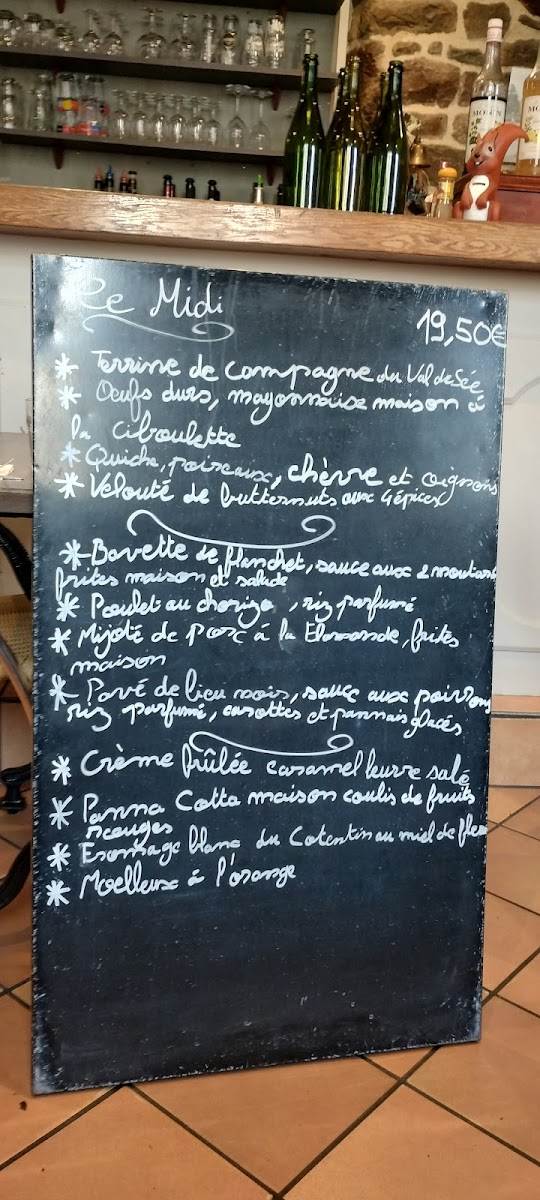 Le Midi
19,50€
* Terrine de campagne du Val de Sée
* Oeufs durs, mayonnaise maison à
la ciboulette
* Quiche, poireaux, chèvre et oignons
* Velouté de butternuts aux 4 épices
* Bavette de flanchet, sauce aux 2 moutard
frites maison et salade
* Poulet au chorizo, riz parfumé
* Mijoté de porc à la Flamande, frites
maison
* Pavé de lieu noir, sauce aux poivrons
riz parfumé, carottes et pannais glacés
* Crème brûlée caramel beurre salé
* Panna Cotta maison coulis de fruits
rouges
* Fromage blanc du Cotentin au miel de fleu
* Moelleux à l'orange